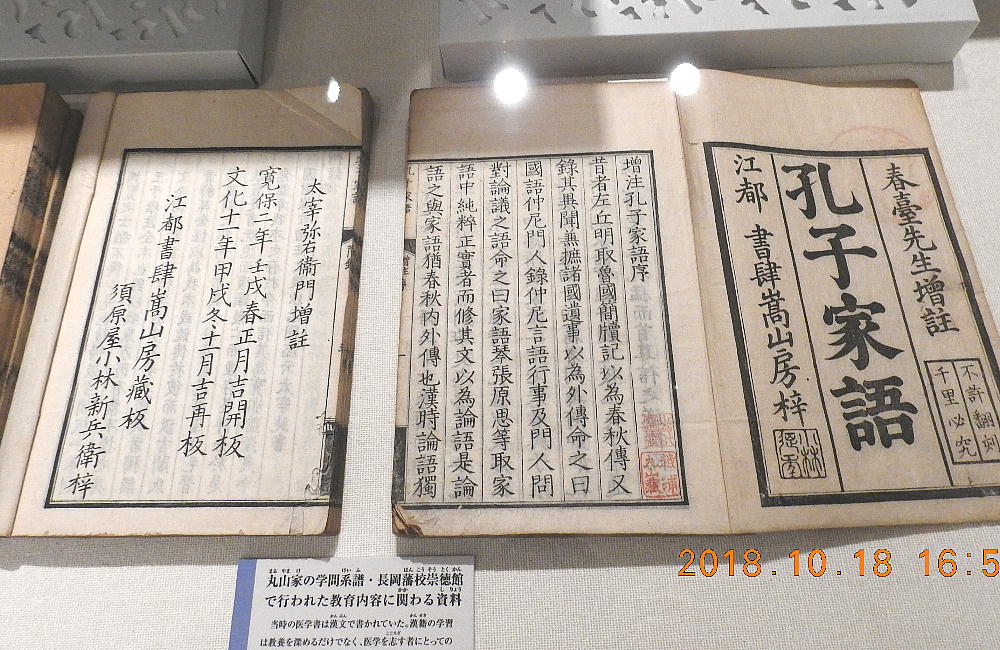 春臺先生增註
孔子家語
江都 書肆嵩山房梓
不許翻刻
千里必究
增注孔子家語序
昔者左丘明取魯國簡牘記以為春秋傳又
錄其異聞兼摭諸國遺事以為外傳命之曰
國語仲尼門人錄仲尼言語行事及門人問
對論議之語命之曰家語琴張原思等取家
語中純粹正實者而修其文以為論語是論
語之與家語猶春秋內外傳也漢時論語獨
太宰弥右衞門增註
寬保二年壬戌春正月吉開板
文化十一年甲戌冬十一月吉再板
江都書肆嵩山房藏板
須原屋小林新兵衛梓
丸山家の学問系譜・長岡藩校崇徳館
で行われた教育内容に関わる資料
当時の医学書は漢文で書かれていた。漢籍の学習
は教養を深めるだけでなく、医学を志す者にとっての
2018.10.18 16:5